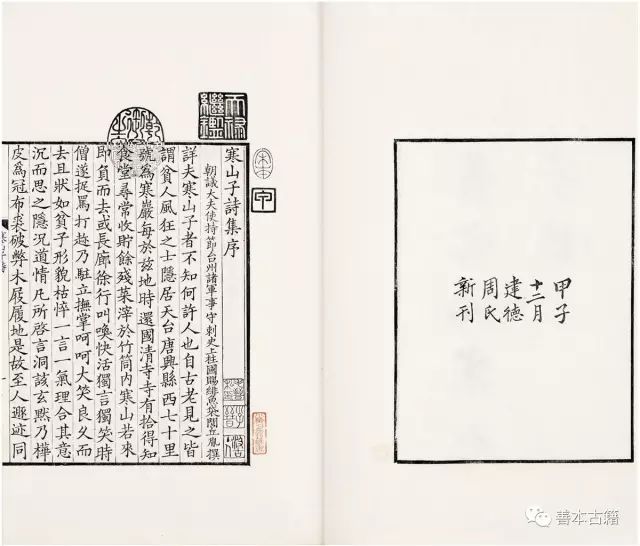 甲子
十二月
建德
周氏
新刊
天祿
繼鑑
宋本
甲
寒山子詩集序
朝議大夫使持節台州諸軍事守刺史上柱國賜緋魚袋閭丘胤撰
詳夫寒山子者不知何許人也自古老見之皆
謂貧人風狂之士隱居天台唐興縣西七十里
號爲寒巖每於兹地時還國清寺寺有拾得知
食堂尋常收貯餘殘菜滓於竹筒内寒山若來
即負而去或長廊徐行叫喚快活獨言獨笑時
僧遂捉罵打趁乃駐立撫掌呵呵大笑良久而
去且狀如貧子形貌枯悴一言一氣理合其意
沉而思之隱況道情凡所啓言洞該玄默乃樺
皮爲冠布裘破弊木屐履地是故至人遯迹同
善本古籍